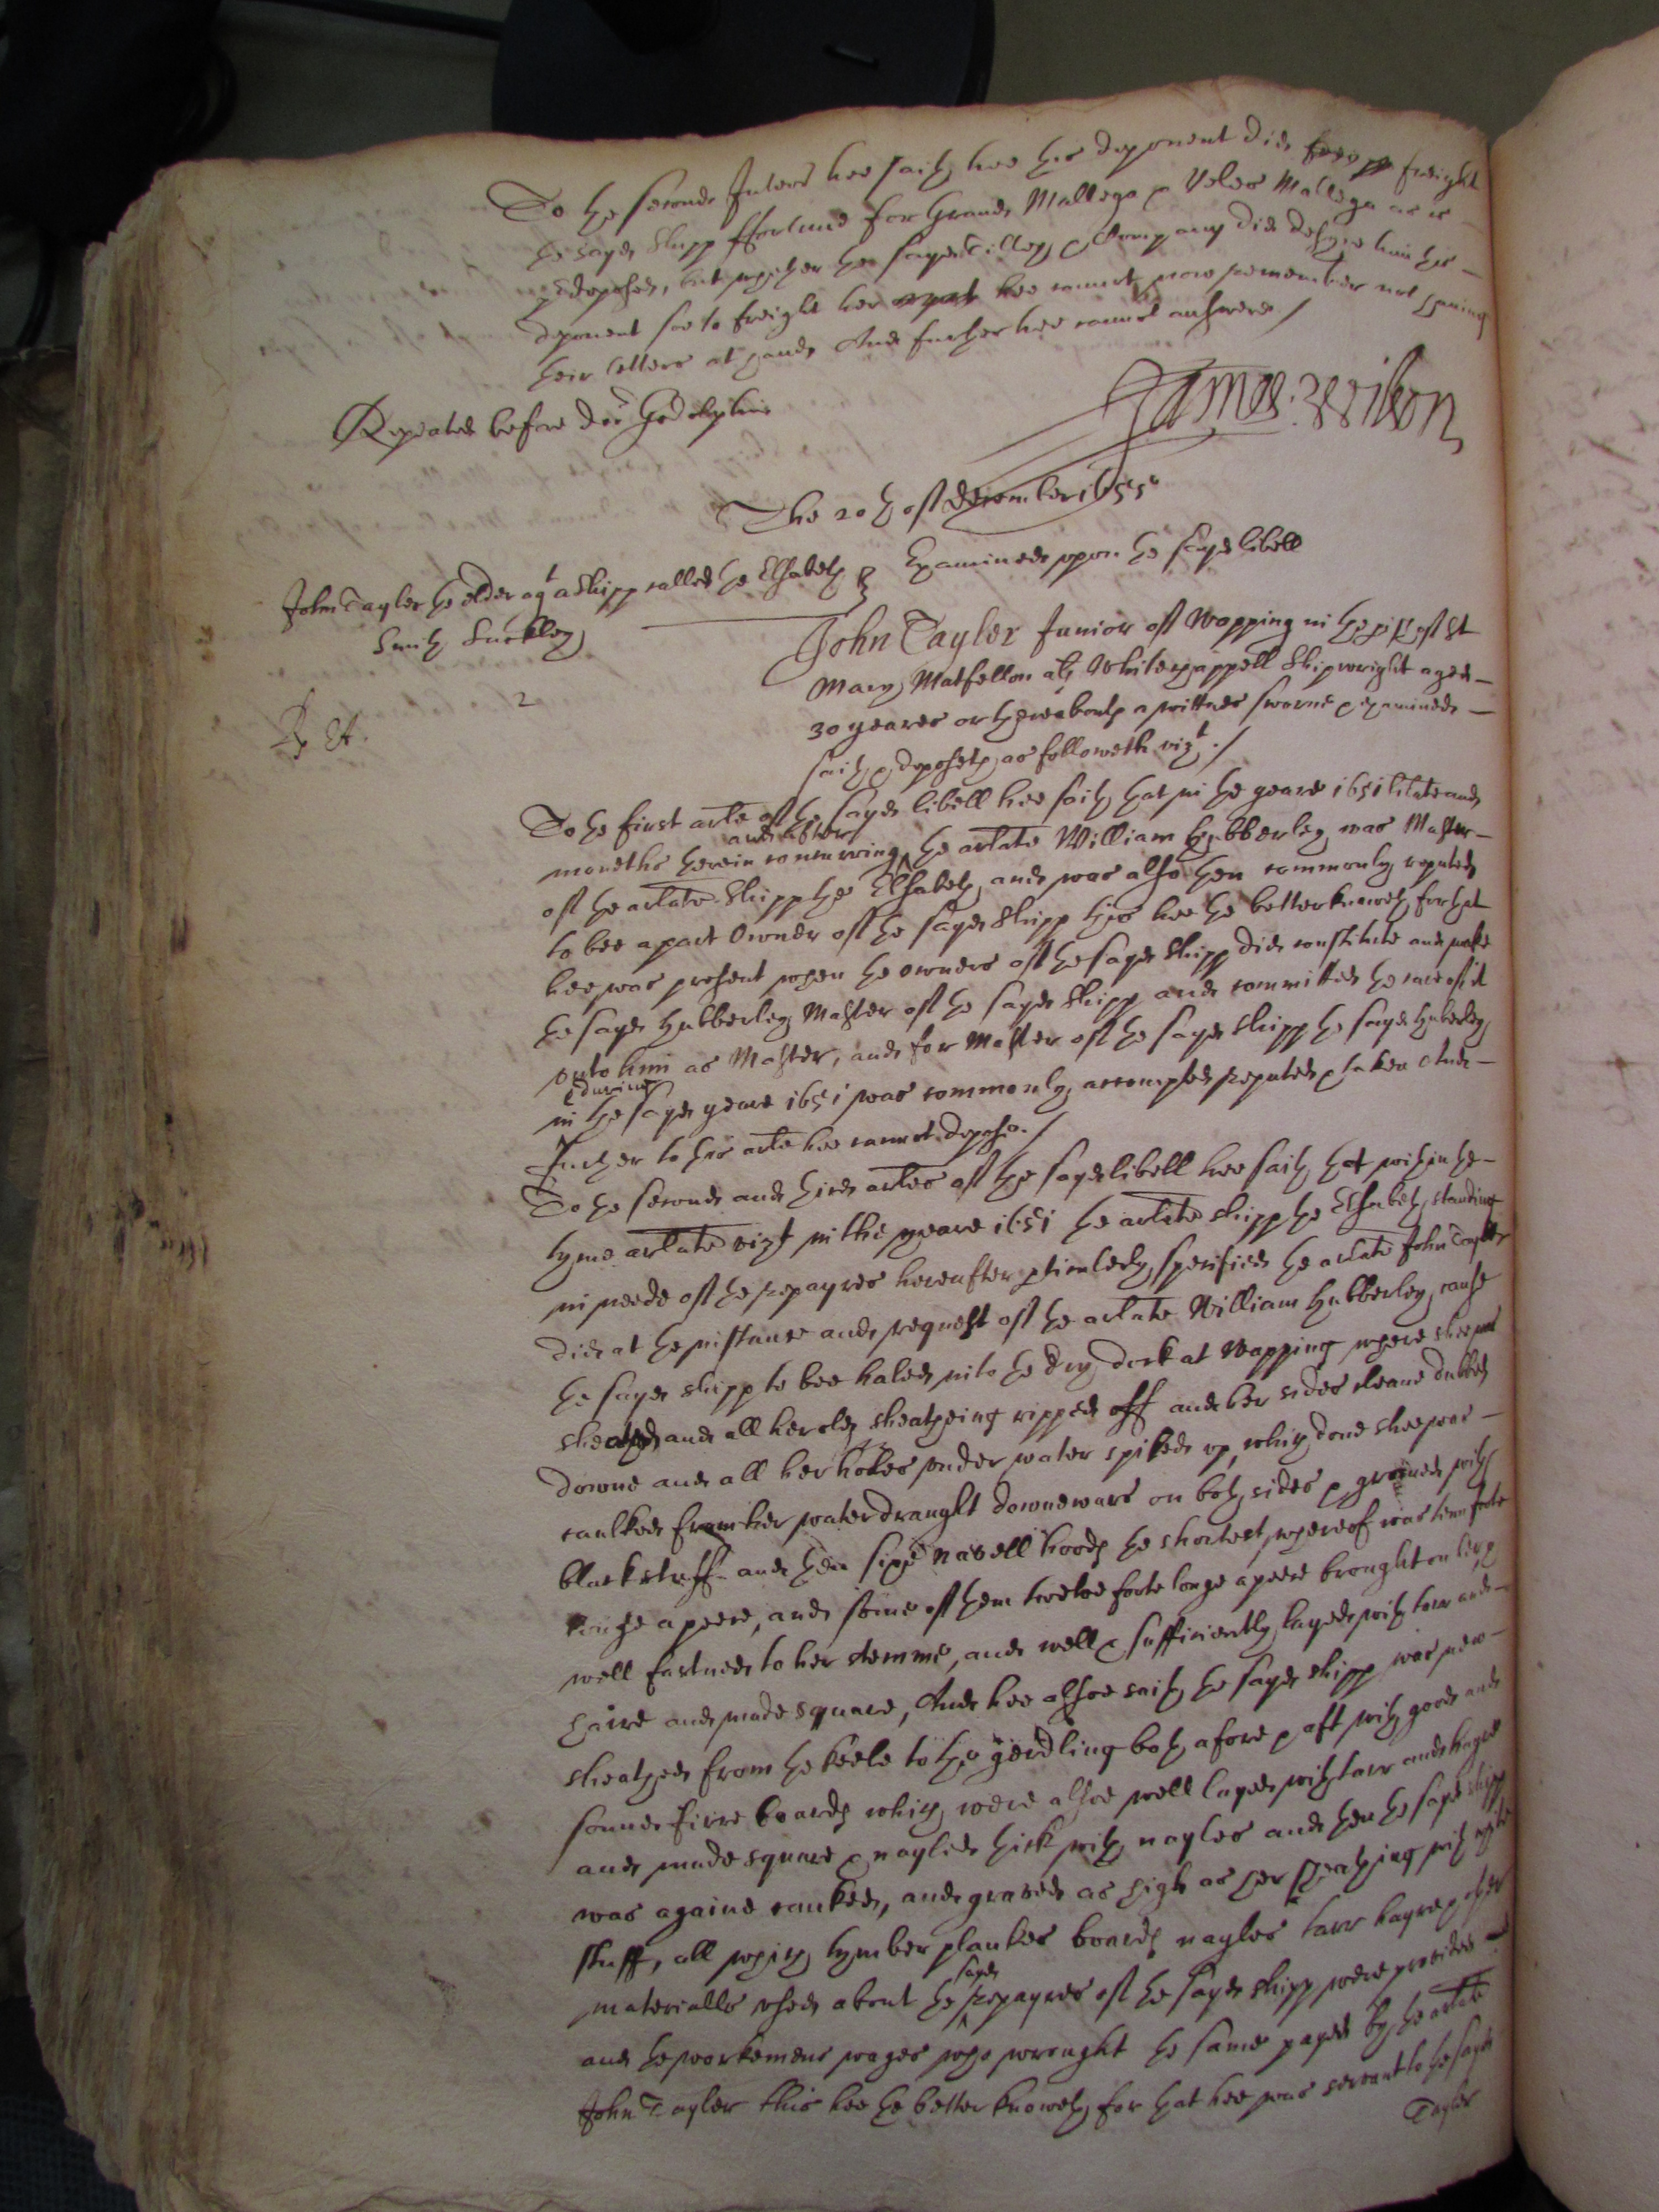 To the second Interr hee saith hee this deponent did freight
the sayd shipp ffortune for Grand Mallega & Veles Mallega as is
predeposed, but whether the sayd Tilley & Company did desyre him this
deponent soe to freight her hee cannot now remember not having
their letters at hand, And further hee cannot answere./
James: Wilson
Repeated before dor Godolphin
The 20th of december 1655
John Tayler the elder agt a shipp called the Elsabeth
Smith Suckley
Examined upon the sayd libell
2
John Tayler Junior of Wapping in the pish of St
Mary Matfellon als Whitechappell Shipwright aged
30 yeares or thereabouts a wittnes sworne & examined
saith & deposeth as followeth vizt./
To the first arle of the sayd libell hee saith that in the yeare 1651 libellate and
and after
moneths therein concurring the arlate William Hubberley was Master
of the arlate shipp the Elsabeth, and was also then commonly reputed
to bee a part Owner of the sayd shipp this hee the better knoweth for that
hee was present when the owners of the sayd shipp did constitute and make
the sayd Hubberley Master of the sayd shipp and committed the care of it
unto him as Master, and for Master of the sayd shipp the sayd Huberley
& during
in the sayd yeare 1651 was commonly accompted reputed & taken And
further to this arle hee cannot depose./
To the second and third arles of the sayd libell hee saith that within the
tyme arlate vizt in the yeare 1651 the arlate shipp the Elsabeth, standing
in neede of the repayres hereafter pticulerly specified the arlate John Tayler
did at the instance and request of the arlate William Hubberley, cause
the sayd shipp to bee haled into the dry dock at Wapping where shee was
sheathed and all her old sheatheing ripped off and her sides cleane dubbed
downe and all her holes under water spiked up, which done shee was
caulked from her water draught downeward on both sides & graved with
black stuff and then sixe navell hoods the shortest whereof was tenn foote
longe a peece, and some of them twelve foote longe a peece brought on &
well fastned to her stemme, and well & sufficiently layed with tarr and
haire and made square, And hee alsoe saith the sayd shipp was new
sheathed from the keele to the gerdling both afore & aft with good and
sound firre boards which were alsoe well layed with tarr and hayre
and made square & nayled thick with nayles and then the sayd shipp
was againe caulked, and graved as high as her sheathing with white
stuff, all which tymber plankes boards nayles tarr hayre & other
sayd
materialls used about the repayres of the sayd shipp were provided
and the workemens wages who wrought the same payed by the arlate
John Tayler this hee the better knoweth for that hee was servant to the sayd
Tayler